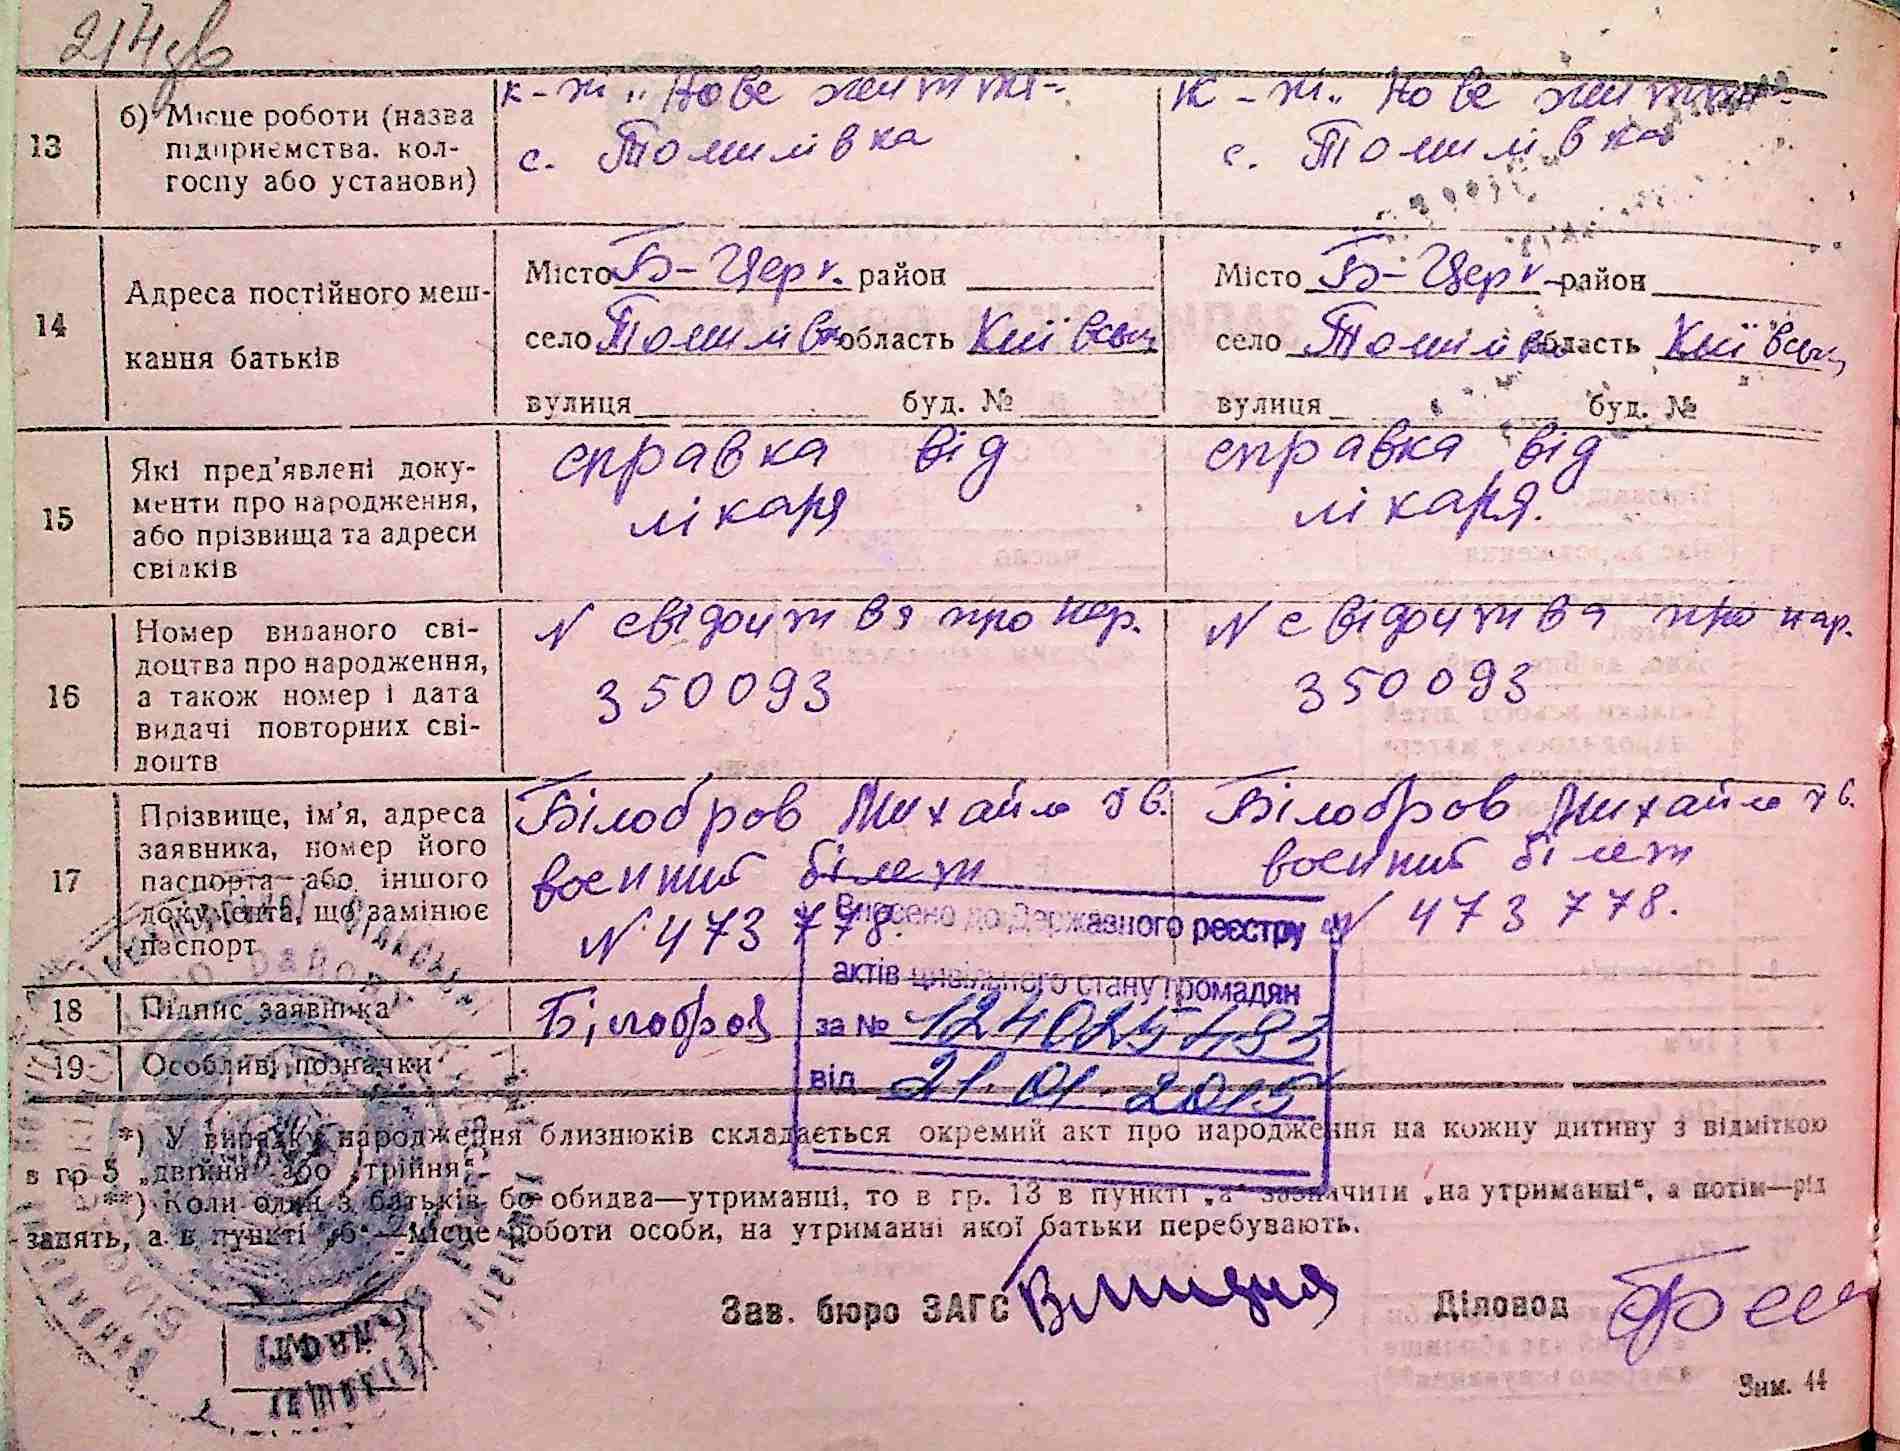 214зв
13
б) Місце роботи (назва
підприємства, кол-
госпу або установи)
к-п „Нове життя-
с. Томилівка
к-п „Нове життя-
с. Томилівка
14
Адреса постійного меш-
кання батьків
Місто Б-Церк. район
село Томилівка область Київськ
вулиця буд. №
Місто Б-Церк. район
село Томилівка область Київськ
вулиця буд. №
15
Які пред'явлені доку-
менти про народження,
або прізвища та адреси
свідків
справка від
лікаря
справка від
лікаря.
16
Номер виданого сві-
доцтва про народження,
а також номер і дата
видачі повторних сві-
доцтв
N свідоцтва про нар.
350093
N свідоцтва про нар.
350093
17
Прізвище, ім'я, адреса
заявника, номер його
паспорта або іншого
документа, що замінює
паспорт
Білобров Михайло Ів.
воєнний білет
N 473778.
Білобров Михайло Ів.
воєнний білет
N 473778.
18
Підпис заявника
Білобров
19
Особливі позначки
Внесено до Державного реєстру
актів цивільного стану громадян
за №
від 21.01.2015
*) У випадку народження близнюків складається окремий акт про народження на кожну дитину з відміткою
в гр 5 „двійня" або „трійня"
**) Коли один з батьків бо обидва—утриманці, то в гр. 13 в пункті „а" зазначити „на утриманні", а потім—рід
занять, а в пункті „б"—місце роботи особи, на утриманні якої батьки перебувають.
Зав. бюро ЗАГС
Діловод
Зим. 44